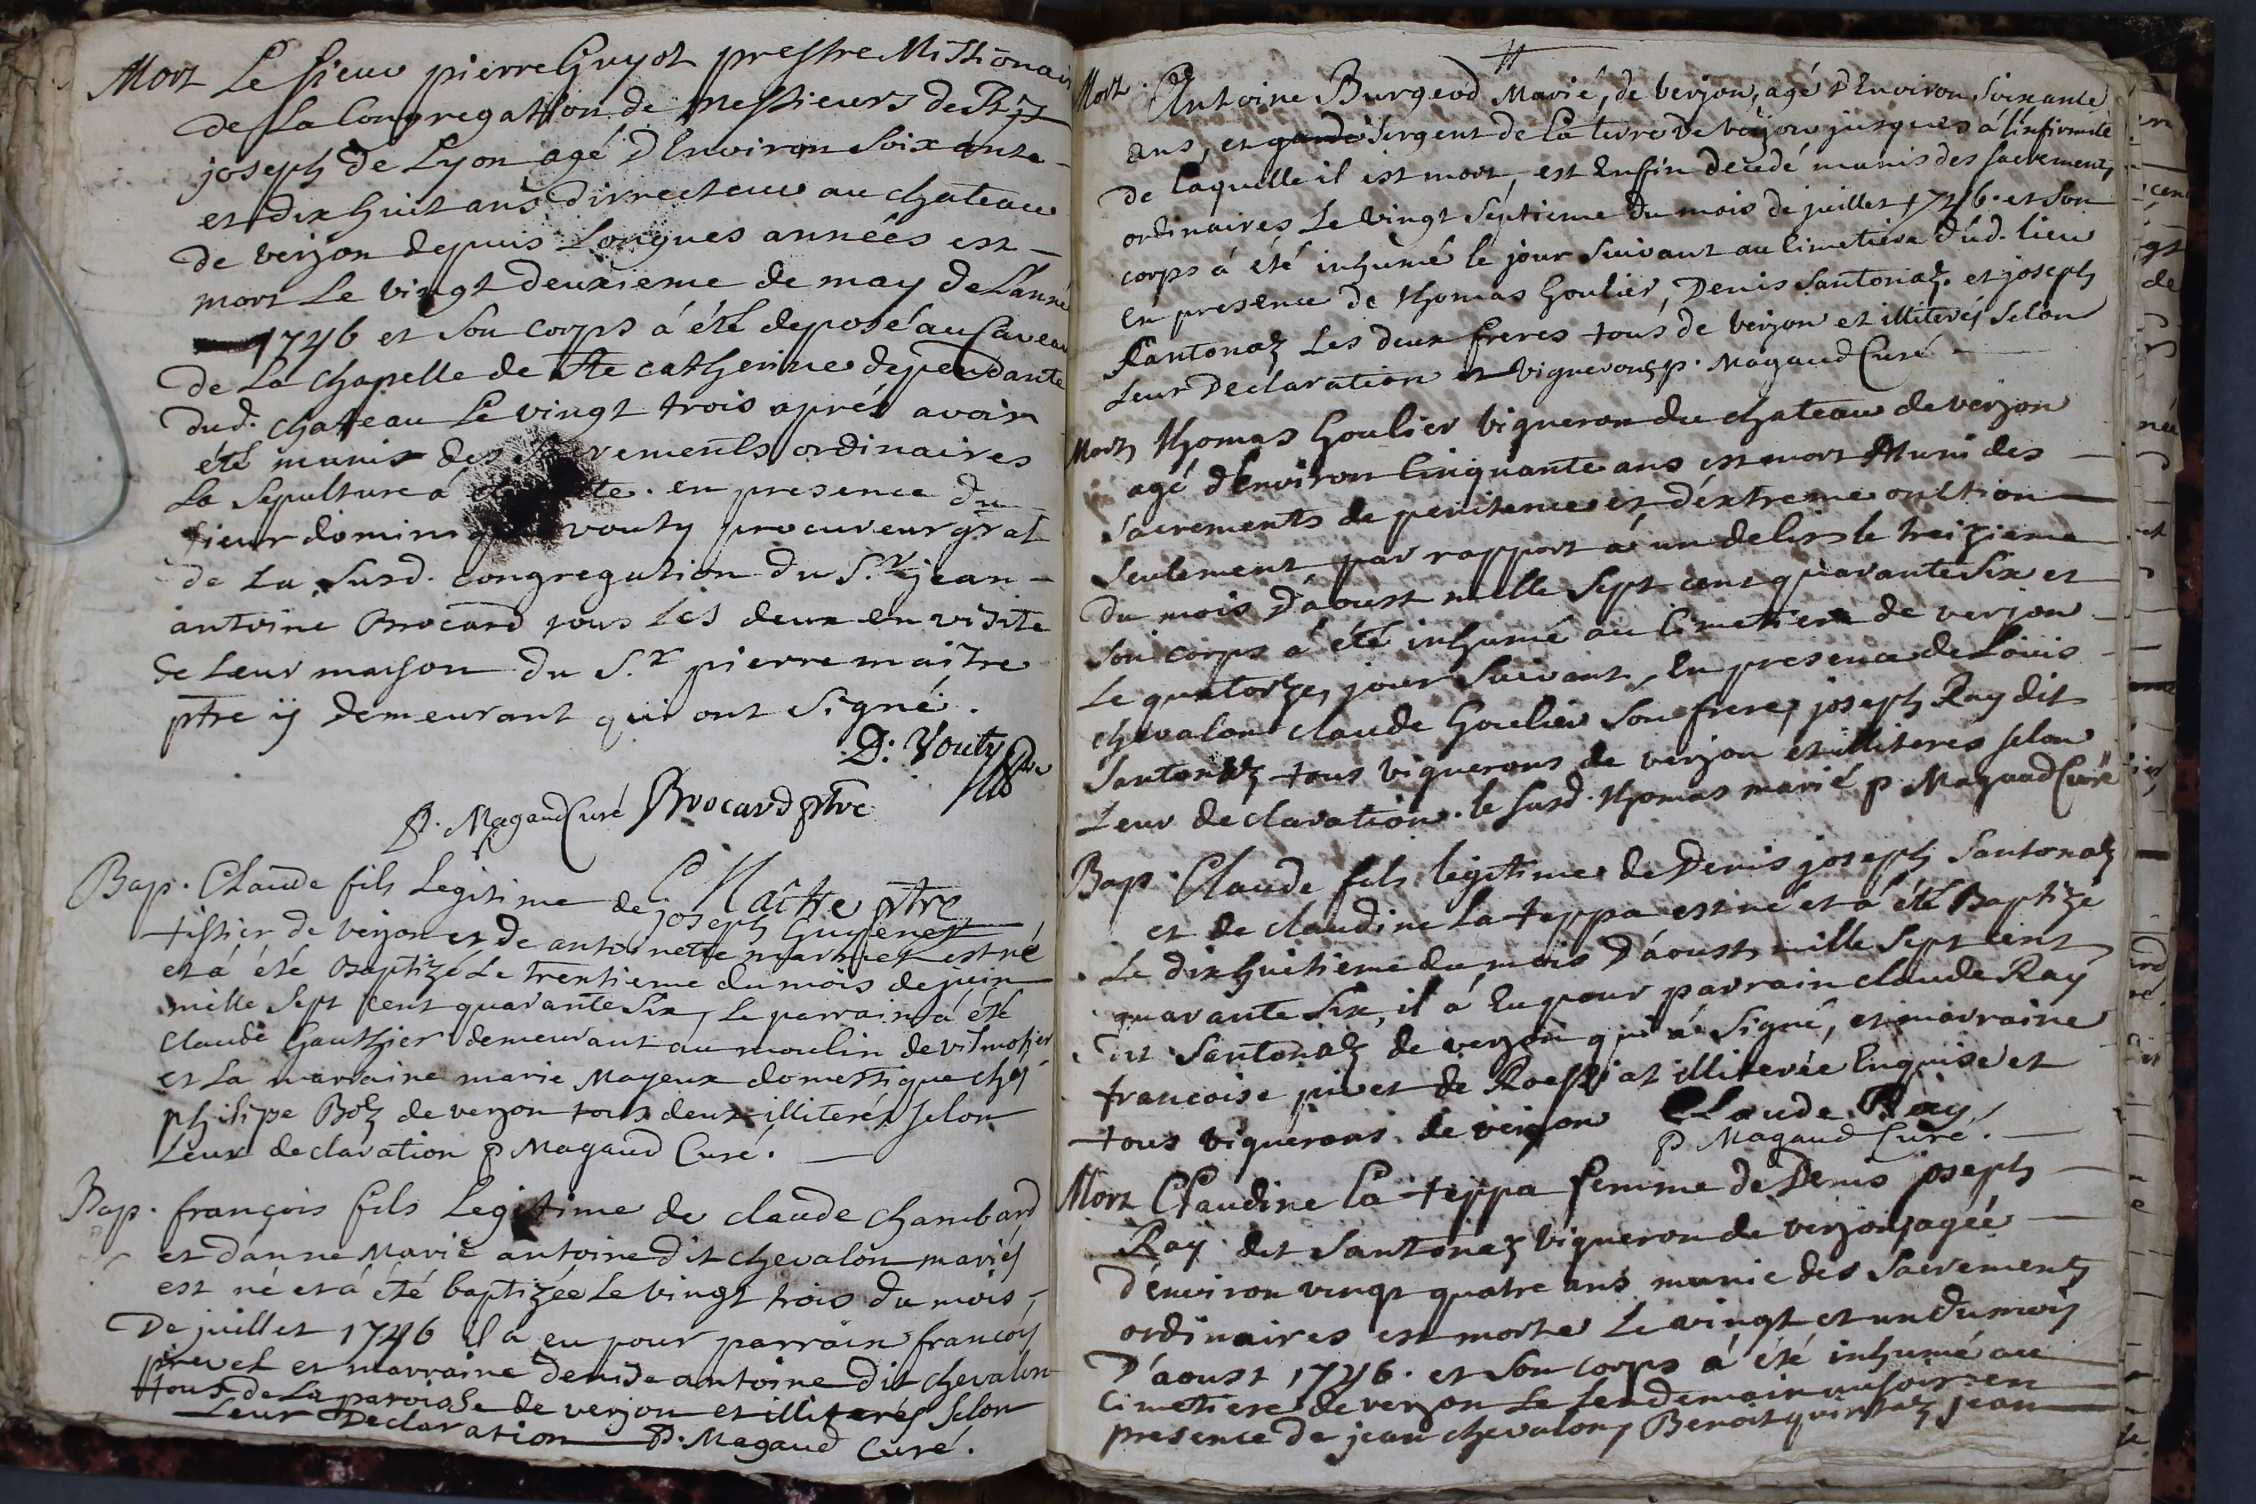 Mort Le sieur pierre Guyot prestre Missionair
de la Congregation de messieurs de St
joseph de Lyon agé d'Environ soixante
et dix huit ans dirrecteur au chateau
de verjon depuis Longues années est
mort Le vingt deuxieme de may de L'année
1746 et son corps á été deposé au Caveau
de La chapelle de ste catherine dependante
dud. chateau Le vingt trois aprés avoir
été munis des sacrements ordinaires
La sepulture á été faite. en presence du
sieur dominique vouty procureur gral
de La susd. congregation du S.r jean
antoine Brocard tous les deux en visite
de Leur mayson du S.r pierre maitre
ptre ÿ demeurant qui ont signé.
D: Vouty ptre
P. Magaud Curé Brocard ptre
Maître ptre
Bap. Claude fils Legitime de joseph Guyenet
tissier de verjon et de antoinette est né
et á été Baptizé Le trentieme du mois de juin
mille sept cent quarante six, Le parrain á été
Claude Gauthier demeurant au moulin de vilmotier
et La marraine marie Mayeux domestique chés
philipe Bolz de verjon tous deux illiterés selon
Leur declaration P Magaud Curé.
Bap. françois fils Legitime de claude chambard
et d'anne Marie antoine dit chevalon mariés
est né et á été baptizée Le vingt trois du mois
De juillet 1746 il a eu pour parrain francois
pivet et marraine denise antoine dit chevalon
tous de La paroisse de verjon et illiterés selon
Leur Declaration P. Magaud Curé.
Mort. Antoine Burgeod Marié, de verjon, agé d'Environ soixante
ans, et garde sergent de la terre de verjon jusques á l'infirmité
de laquelle il est mort, est Enfin decedé munis des sacrements
ordinaires Le vingt septieme du mois de juillet 1746. et son
corps á été inhumé le jour suivant au Cimetiere dud. lieu
En presence de thomas Goulier, Denis Santonaz et joseph
Santonaz Les deux freres tous de verjon et illiterés selon
Leur Declaration et vignerons P. Magaud Curé
Mort thomas Goulier vigneron du chateau de verjon
agé d'Environ Cinquante ans est mort Muni des
sacrements de penitence et d'extreme onction
seulement par rapport á un delire le treizieme
du mois d'aoust mille sept cent quarante six et
son corps á été inhumé au Cimetiere de verjon
Le quatorze, jour suivant, En presence de Loüis
chevalon Claude Goulier son frere, joseph Ray dit
santonaz tous vignerons de verjon et illiteres selon
Leur déclaration. le susd. thomas marié P Magaud Curé
Bap. Claude fils legitime de Denis joseph Santonaz
et de claudine la teppa est né et á été Baptizé
Le dix huitieme du mois d'áoust mille sept cent
quarante six, il á Eu pour parrain claude Ray
dit Santonaz de verjon qui á signé, et marraine
francoise pivet de illiterée Enquise et
tous vignerons de verjon Claude Ray
P Magaud Curé.
Mort Claudine la teppa femme de Denis joseph
Raÿ dit Santonaz vigneron de verjon, agée
d'environ vingt quatre ans munie des sacrements
ordinaires est morte Le vingt et un du mois
D'áoust 1746. et son corps á été inhumé au
cimetiere de verjon Le Lendemain au soir en
presence de jean chevalon, Benoit jean